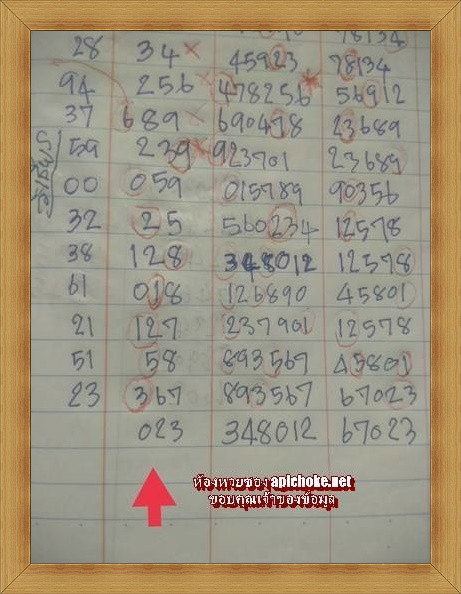 78134
28 34× 45923 78134
94 256× 478256* 56912
37 689× 690478 23689
59 239× 923701 23689
00 059 015789 90356
32 25 560234 12578
38 128 348012 12578
61 018 126890 45801
21 127 237901 12578
51 58 893567 43801
23 367 893567 67023
023 348012 67023
ห้องหวยซอง apichoke.net
ขอบคุณเจ้าของข้อมูล